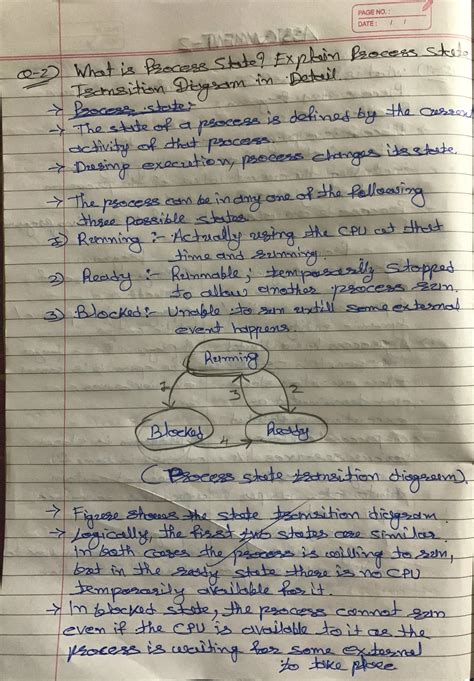 PAGE NO.:
DATE: / /
Q-2) What is Process State? Explain Process State
Transition Diagram in Detail
→ Process state:-
→ The state of a process is defined by the current
activity of that process.
→ During execution, process changes its state.
→ The process can be in any one of the following
three possible states.
1) Running :- Actually using the CPU at that
time and running.
2) Ready :- Runnable; temporarily stopped
to allow another process run.
3) Blocked:- Unable to run untill some external
event happens.
Running
1 3 2
Blocked 4 Ready
(Process state transition diagram).
→ Figure shows the state transition diagram.
→ Logically, the first two states are similar.
In both cases the process is willing to run,
but in the ready state there is no CPU
temporarily available for it.
→ In blocked state, the process cannot run
even if the CPU is available to it as the
process is waiting for some external
to take place